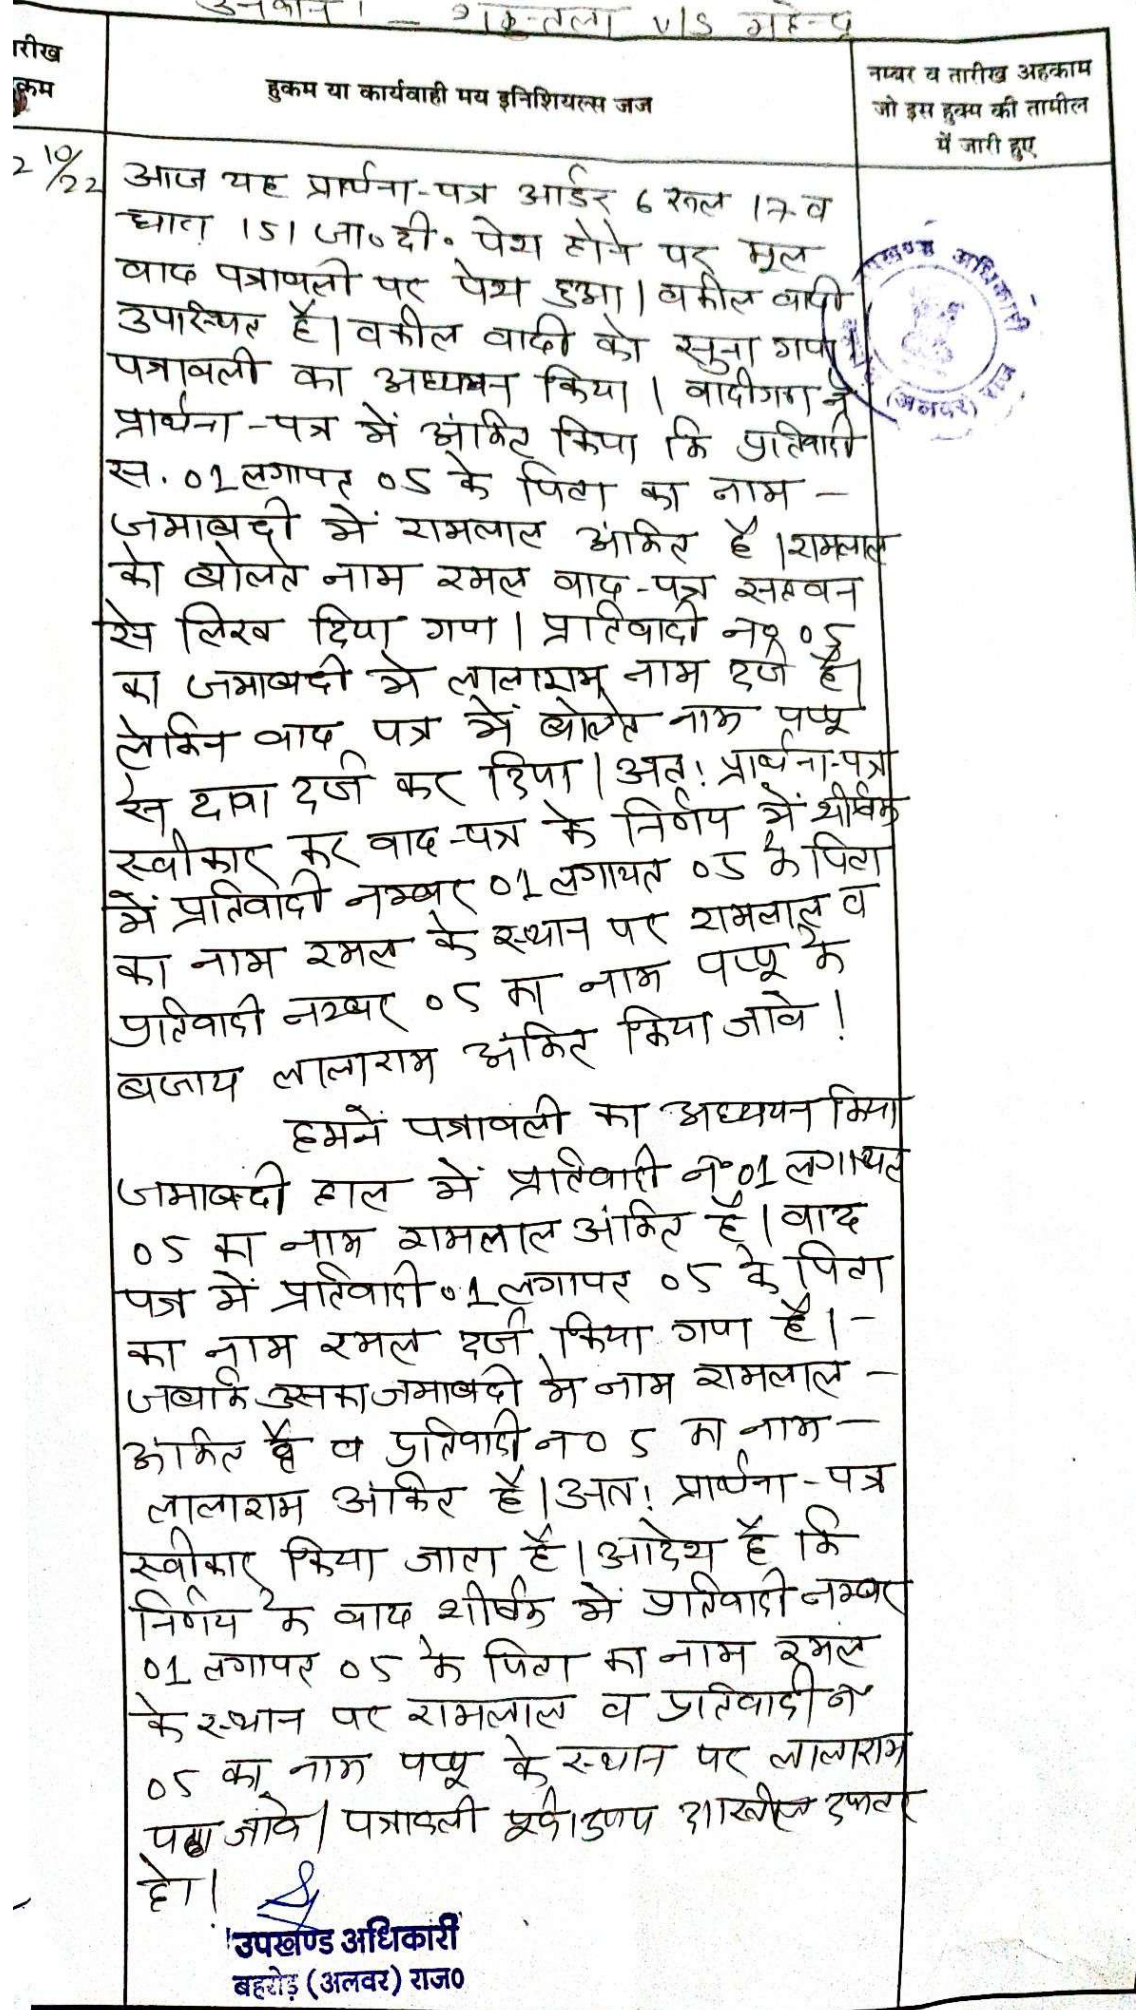 शकुन्तला v/s महेन्द्र
तारीख हुक्म
हुकम या कार्यवाही मय इनिशियल्स जज
नम्बर व तारीख अहकाम
जो इस हुक्म की तामील
में जारी हुए
10/22
आज यह प्रार्थना-पत्र आर्डर 6 रूल 17 व
धारा 151 जा०दी० पेश होने पर मूल
वाद पत्रावली पर पेश हुआ। वकील वादी
उपस्थित है। वकील वादी को सुना गया।
पत्रावली का अध्ययन किया। वादीगण ने
प्रार्थना-पत्र में अंकित किया कि प्रतिवादी
स. 01 लगायत 05 के पिता का नाम -
जमाबन्दी में रामलाल अंकित है। रामलाल
को बोलते नाम रमल वाद-पत्र
से लिख दिया गया। प्रतिवादी न० 05
का जमाबदी मे लालाराम नाम दर्ज है।
लेकिन वाद पत्र में बोलते नाम पप्पू
से दावा दर्ज कर दिया। अत: प्रार्थना-पत्र
स्वीकार कर वाद-पत्र के निर्णय में शीर्षक
में प्रतिवादी नम्बर 01 लगायत 05 के पिता
का नाम रमल के स्थान पर रामलाल व
प्रतिवादी नम्बर 05 का नाम पप्पू के
बजाय लालाराम अंकित किया जावे!
हमनें पत्रावली का अध्ययन किया
जमाबन्दी हाल में प्रतिवादी नं० 01 लगायत
05 का नाम रामलाल अंकित है। वाद
पत्र में प्रतिवादी 01 लगायत 05 के पिता
का नाम रमल दर्ज किया गया है। -
जबकि उसका जमाबदी मे नाम रामलाल -
अंकित है व प्रतिवादी न 05 का नाम -
लालाराम अंकित है। अत: प्रार्थना-पत्र
स्वीकार किया जाता है। आदेश है कि
निर्णय के वाद शीर्षक में प्रतिवादी नम्बर
01 लगायत 05 के पिता का नाम रमल
के स्थान पर रामलाल व प्रतिवादी नं
05 का नाम पप्पू के स्थान पर लालाराम
पढा जावे। पत्रावली दाखील दफ्तर
हो।
उपखण्ड अधिकारी
बहरोड़ (अलवर) राज०
उपखण्ड अधिकारी
(अलवर) राज